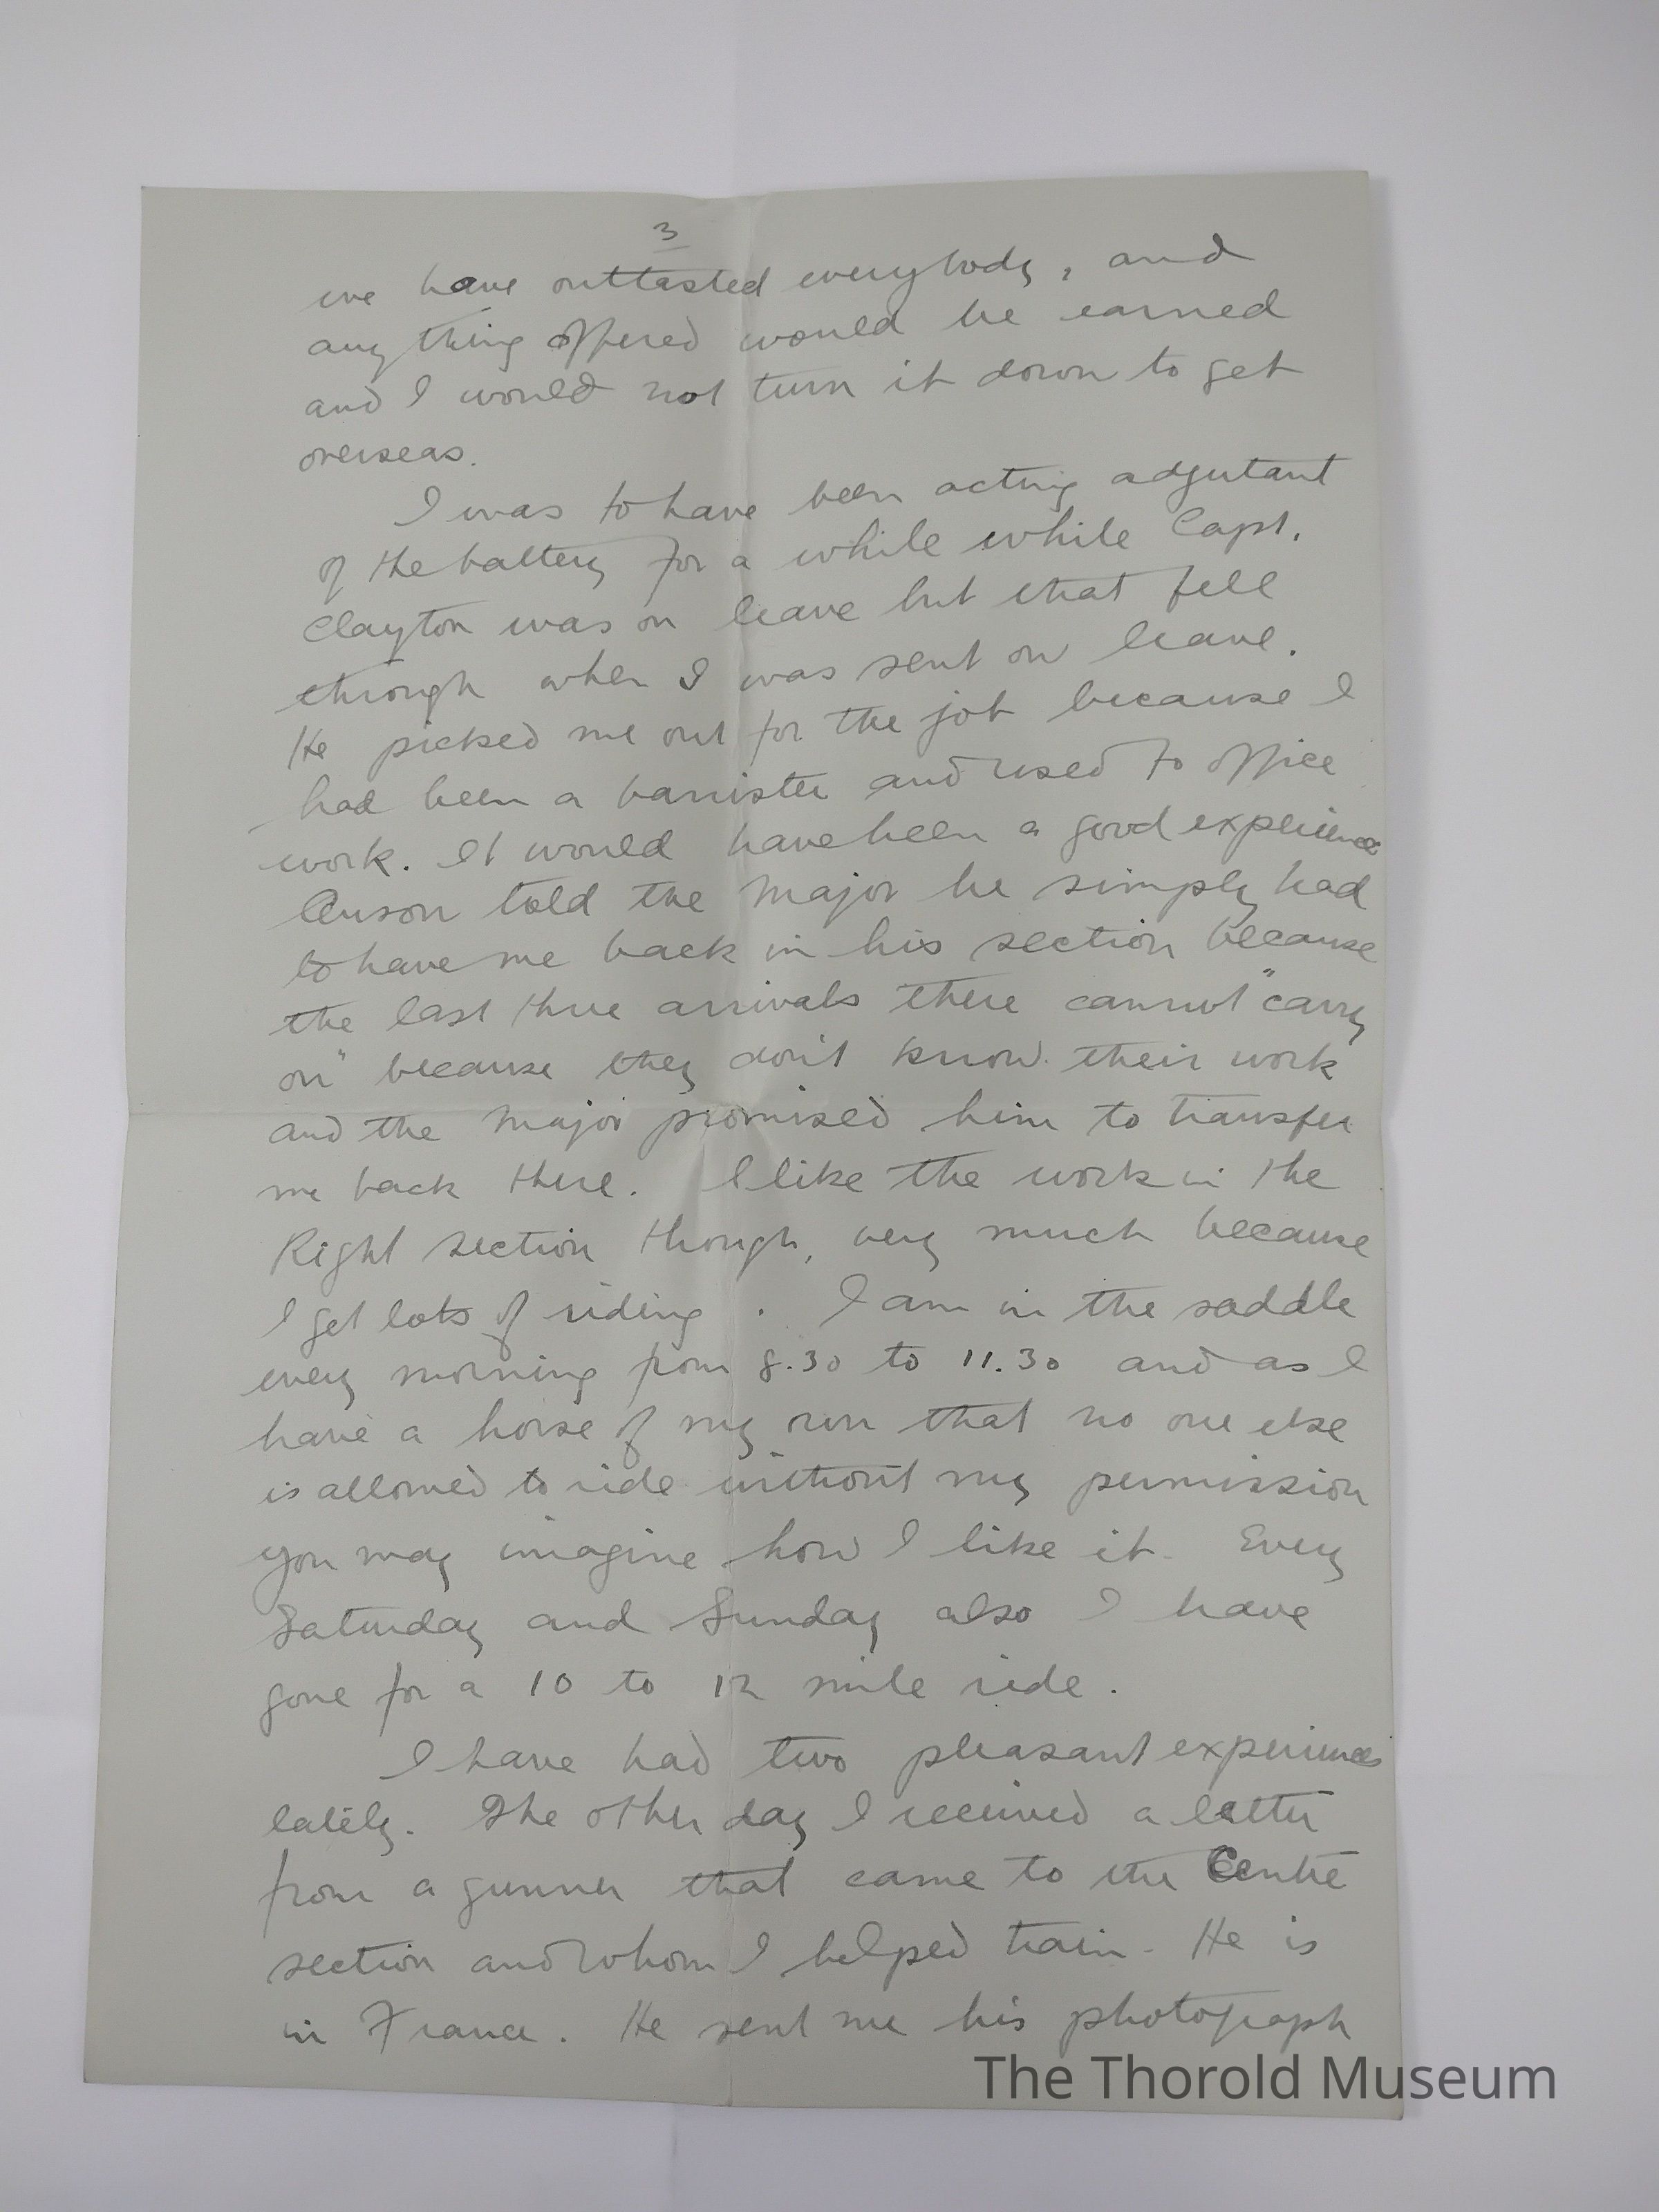 3
we have outlasted everybody, and
any thing offered would be earned
and I would not turn it down to get
overseas.
I was to have been acting adjutant
of the battery for a while while Capt.
Clayton was on leave but that fell
through when I was sent on leave.
He picked me out for the job because I
had been a barrister and used to office
work. It would have been a good experience
Anson told the Major he simply had
to have me back in his section because
the last three arrivals there cannot "carry
on" because they don't know their work
and the Major promised him to transfer
me back there. I like the work in the
Right section though, very much because
I get lots of riding. I am in the saddle
every morning from 8.30 to 11.30 and as I
have a horse of my own that no one else
is allowed to ride without my permission
you may imagine how I like it. Every
Saturday and Sunday also I have
gone for a 10 to 12 mile ride.
I have had two pleasant experiences
lately. The other day I received a letter
from a gunner that came to the Centre
section and whom I helped train. He is
in France. He sent me his photograph
The Thorold Museum